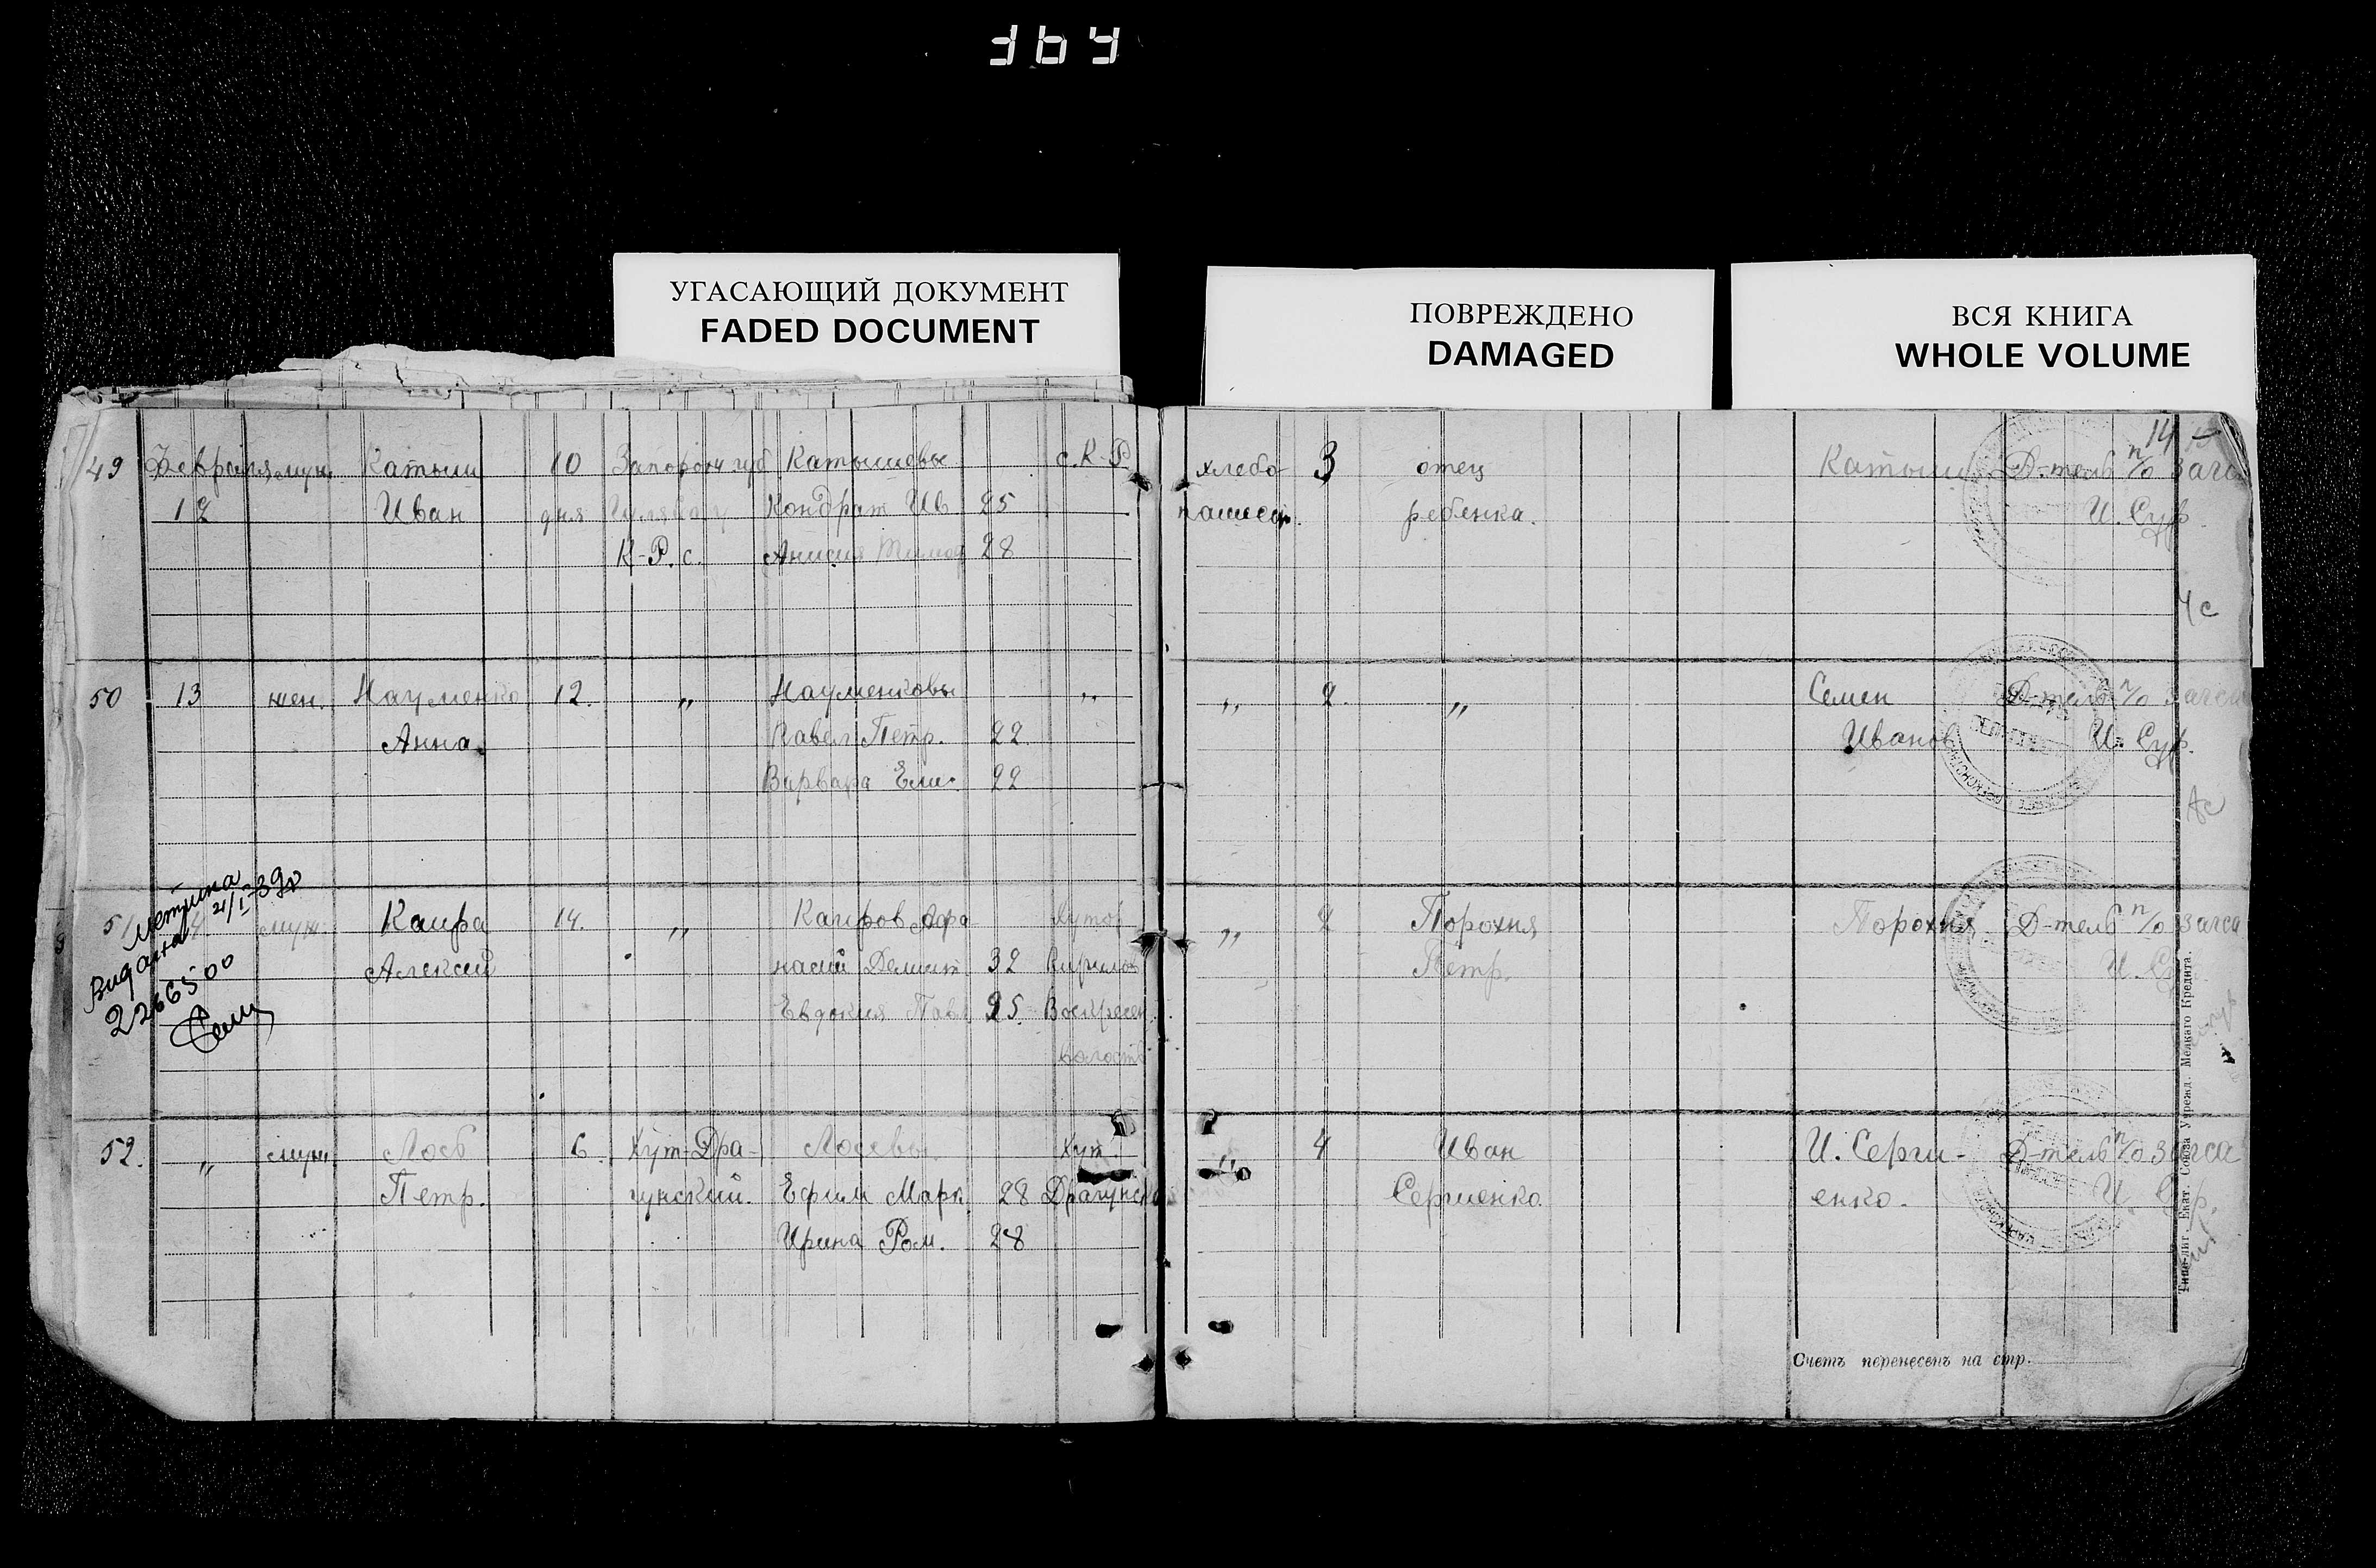 УГАСАЮЩИЙ ДОКУМЕНТ
FADED DOCUMENT
ПОВРЕЖДЕНО
DAMAGED
ВСЯ КНИГА
WHOLE VOLUME
14
49 Февраля муж. Катыш 10 Запорож губ Катышевы с. К-Р. хлебо- 3 отец Катыш Д-тель п/о Загса
12 Иван дня Кондрат Ив 25 пашец. ребенка. И. Сур.
К-Р. с. Анисия 28
4с
50 13 жен. Науменко 12. „ Науменковы „ „ 2. „ Семен Д-тель п/о Загса
Анна. Павел Петр. 22 Иванов И. Сур.
Варвара Ем. 22
Метрика 21/I-39р
Видана
226500
51 муж. Каира 14. „ Каиров Афа- Хутор „ 2 Порохня Порохня Д-тель п/о Загса
Алексей насий Демент. 32 Кирилов Петр. И. Сур.
Евдокия Павл 25. Воскресен.
Волость
52. „ муж. Лось 6. Хут-Дра- Лосевы. Хут. „ 4 Иван И. Серги- Д-тель п/о Загса
Петр. гунский. Ефим Марк. 28 Драгунский Сергиенко. енко. И. Сур.
Ирина Ром. 28
Типо-лит. Екат. Союза Учрежд. Мелкаго Кредита.
Счетъ перенесенъ на стр.